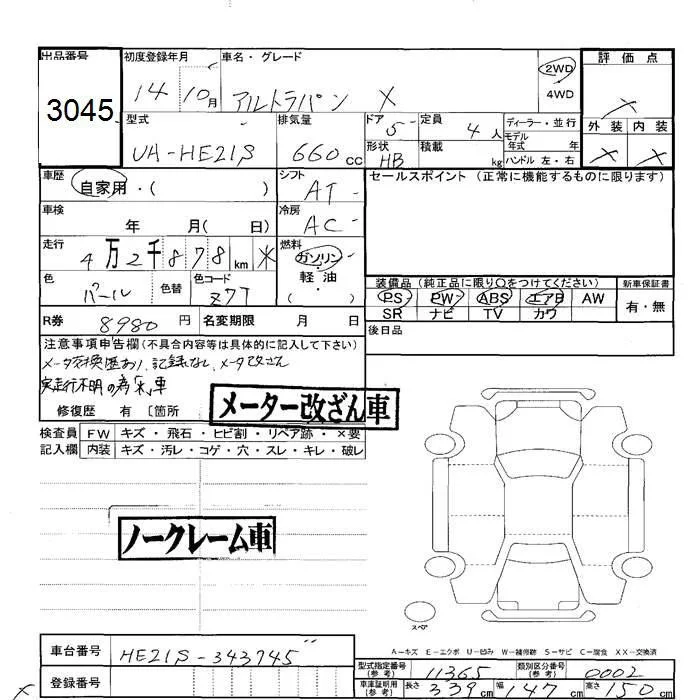 出品番号 初度登録年月 車名・グレード 2WD 評価点
3045 14 10月 アルトラパン X 4WD X
型式 排気量 ドア 5 定員 4人 ディーラー・並行 外装 内装
UA-HE21S 660cc 形状 HB 積載 kg モデル年式 年 X X
ハンドル 左・右
車歴 自家用・( ) シフト AT セールスポイント (正常に機能するものに限ります)
車検 年 月( 日) 冷房 AC
走行 4万2千878km 燃料 ガソリン・軽油 ( )
色 パール 色替 色コード Z7T 装備品(純正品に限り〇をつけてください) 新車保証書
PS PW ABS エアB AW 有・無
SR ナビ TV カワ
R券 8980円 名変期限 月 日 後日品
注意事項申告欄(不具合内容等は具体的に記入して下さい)
メータ交換歴あり、記録なし、メータ改ざん
実走行不明の為 車
修復歴 有 〔箇所 メーター改ざん車
検査員 FW キズ・飛石・ヒビ割・リペア跡・X要
記入欄 内装 キズ・汚レ・コゲ・穴・スレ・キレ・破レ
ノークレーム車
スペア
A-キズ E-エクボ U-凹み W-補修跡 S-サビ C-腐食 XX-交換済
車台番号 HE21S-343745 型式指定番号(参考) 11365 類別区分番号(参考) 0002
登録番号 車庫証明用(参考) 長さ 339cm 幅 147cm 高さ 150cm
X